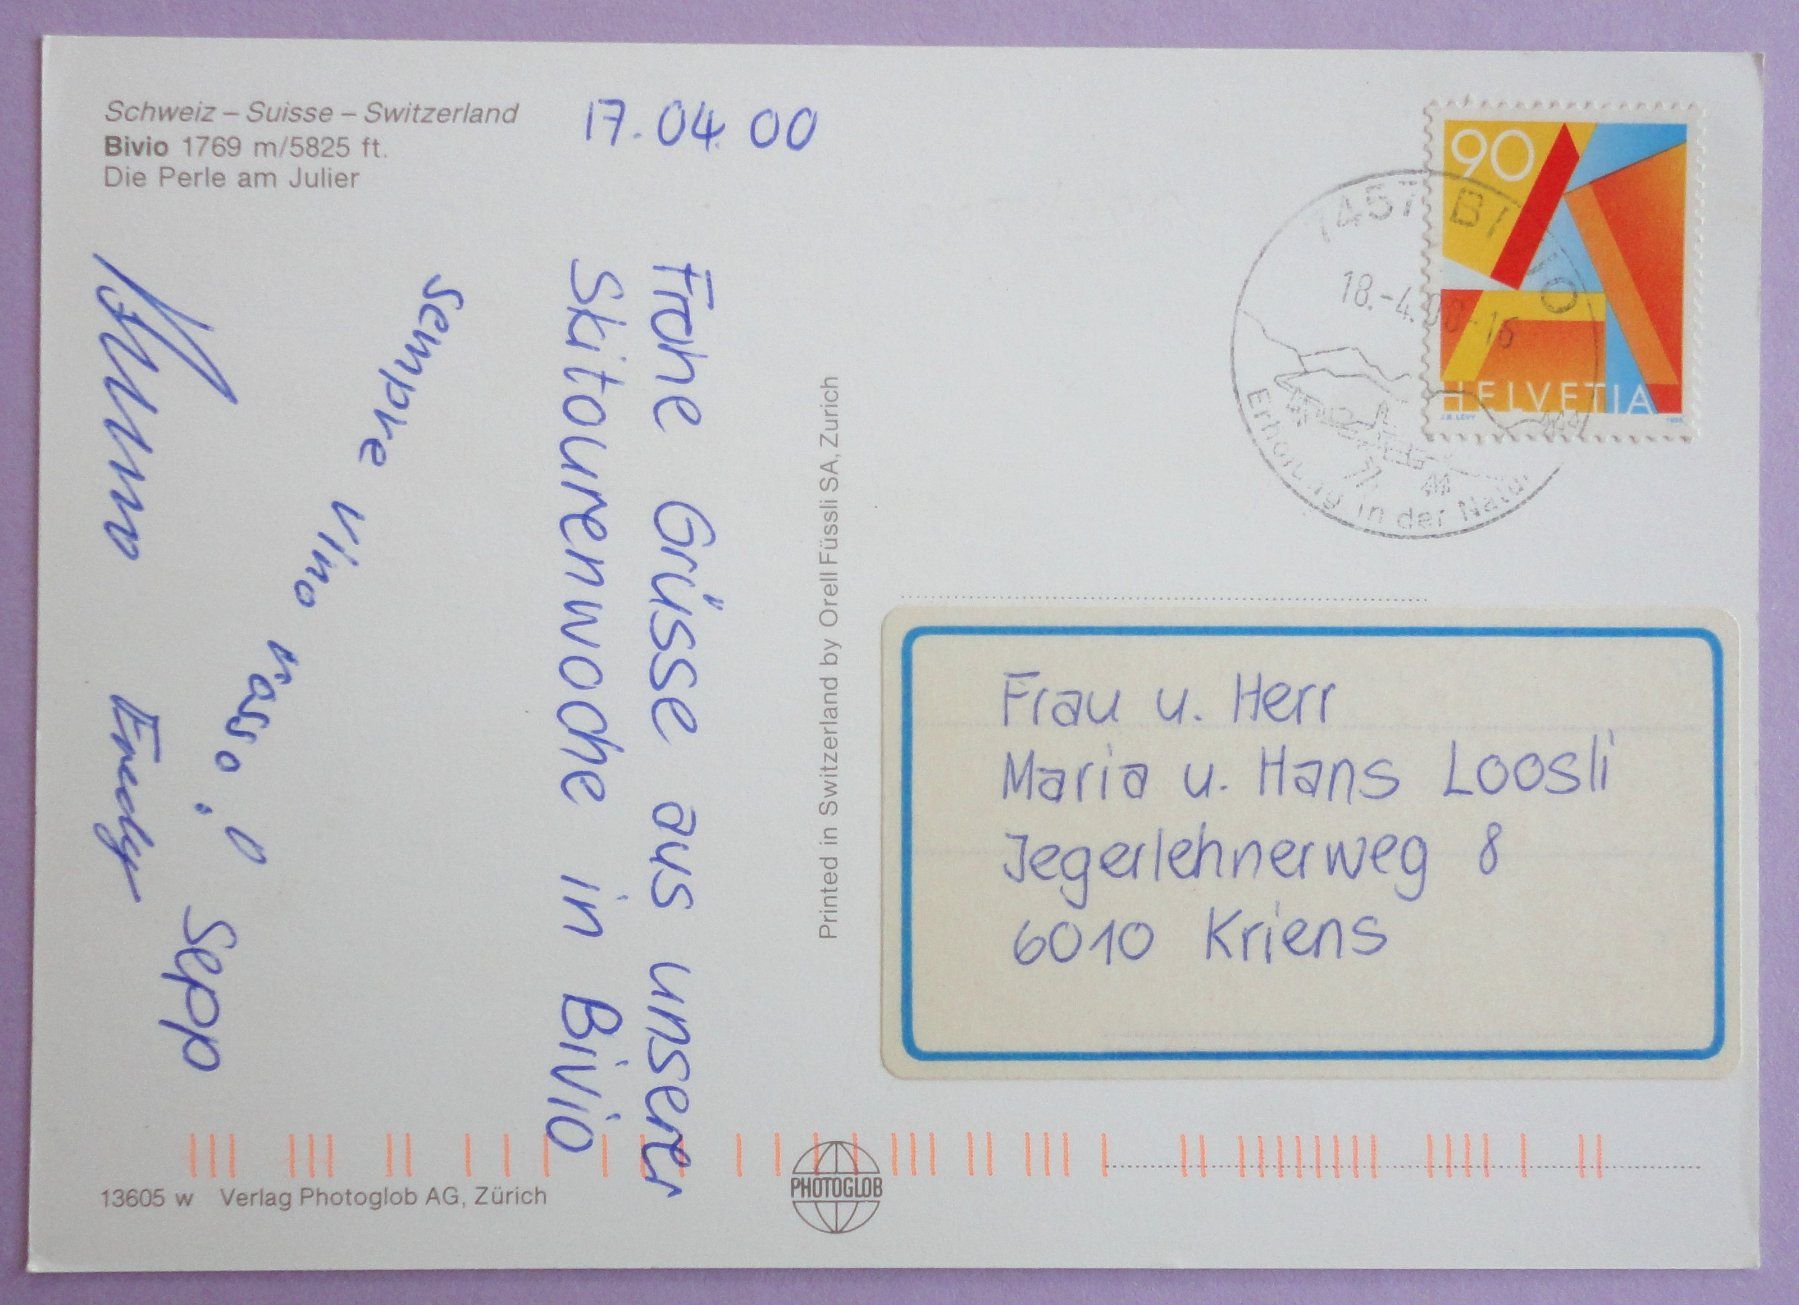 Schweiz – Suisse – Switzerland
Bivio 1769 m/5825 ft.
Die Perle am Julier
17.04.00
Frohe Grüsse aus unserer
Skitourenwoche in Bivio
sempre vino rosso!
Sepp
Printed in Switzerland by Orell Füssli SA, Zurich
90
HELVETIA
J.B. LEVY 1995
7457 BIVIO
18.-4.00-16
Erholung in der Natur
Frau u. Herr
Maria u. Hans Loosli
Jegerlehnerweg 8
6010 Kriens
13605 w Verlag Photoglob AG, Zürich
PHOTOGLOB